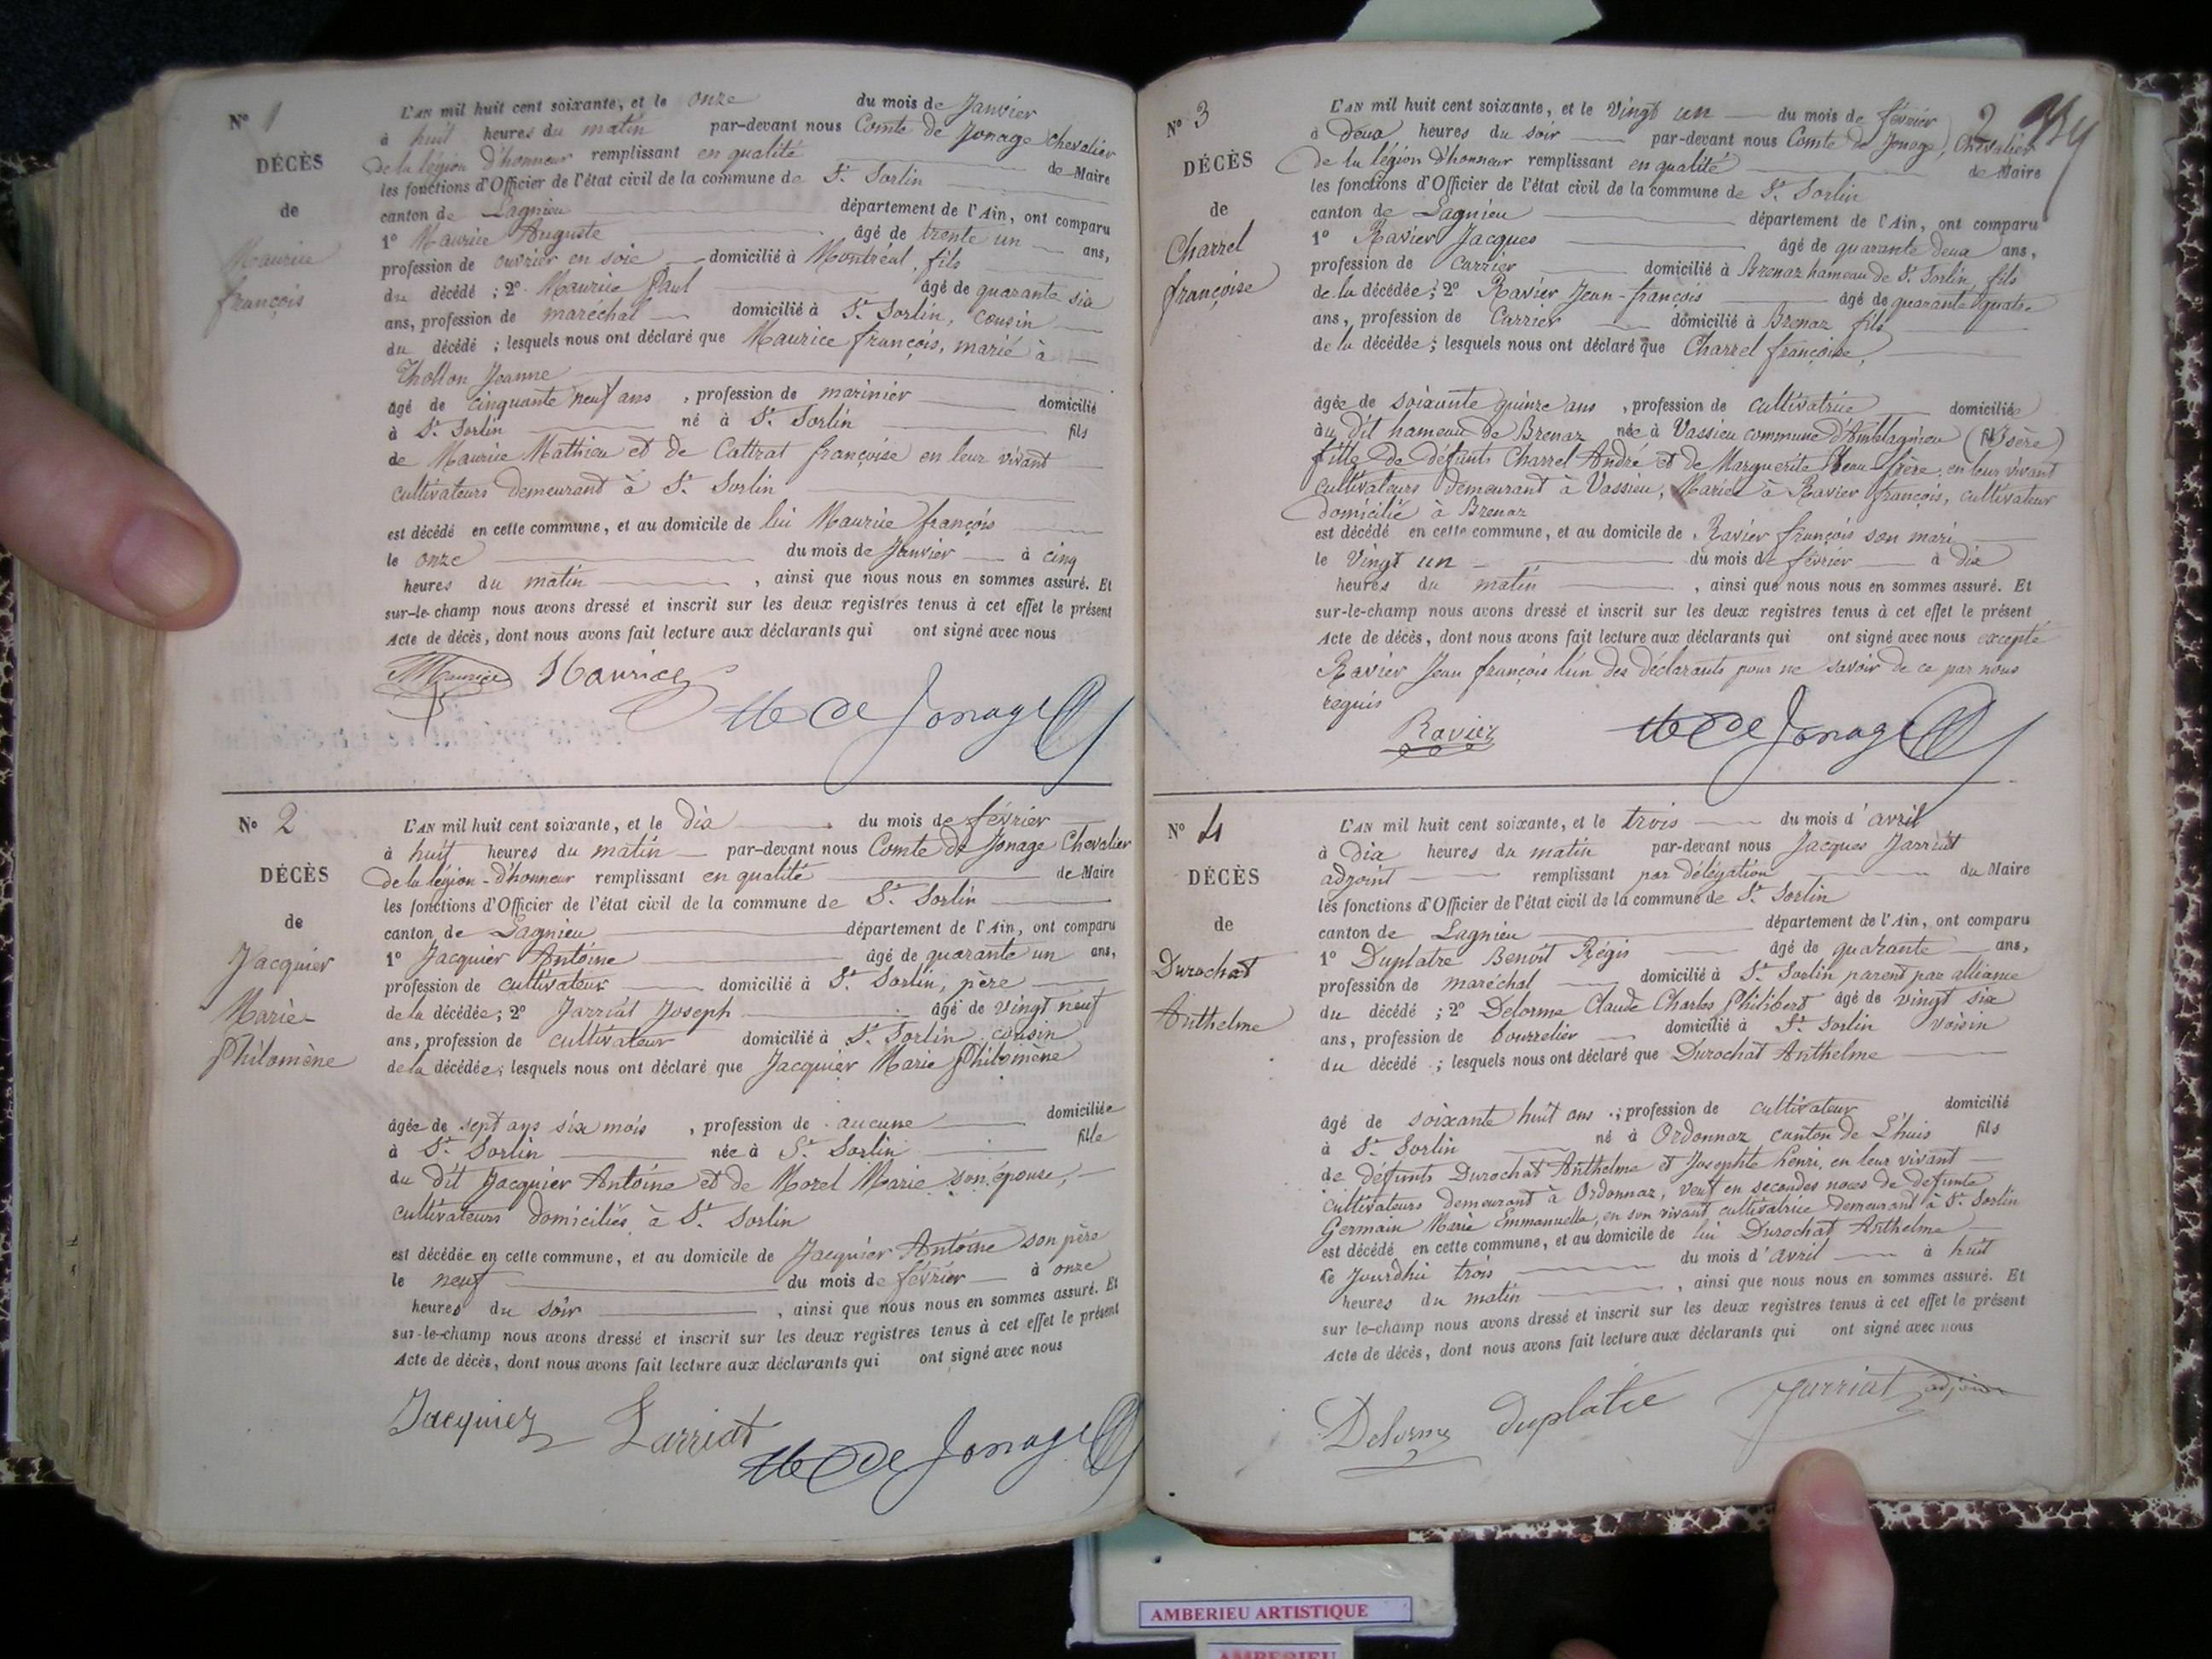 N° 1
DÉCÈS
de
Maurice
françois
L'AN mil huit cent soixante, et le onze du mois de Janvier
à huit heures du matin par-devant nous Comte de Jonage Chevalier
de la légion d'honneur remplissant en qualité de Maire
les fonctions d'Officier de l'état civil de la commune de St. Sorlin
canton de Lagnieu département de l'Ain, ont comparu
1° Maurice Auguste âgé de trente un ans,
profession de ouvrier en soie domicilié à Montréal, fils
du décédé ; 2° Maurice Paul âgé de quarante six
ans, profession de maréchal domicilié à St. Sorlin, cousin
du décédé ; lesquels nous ont déclaré que Maurice françois, marié à
Thollon Jeanne
âgé de cinquante neuf ans, profession de marinier domicilié
à St. Sorlin né à St. Sorlin fils
de Maurice Mathieu et de Cattrat françoise en leur vivant
cultivateurs demeurant à St. Sorlin
est décédé en cette commune, et au domicile de lui Maurice françois
le onze du mois de Janvier à cinq
heures du matin, ainsi que nous nous en sommes assuré. Et
sur-le-champ nous avons dressé et inscrit sur les deux registres tenus à cet effet le présent
Acte de décès, dont nous avons fait lecture aux déclarants qui ont signé avec nous
Maurice Maurice de Jonage
N° 2
DÉCÈS
de
Jacquier
Marie-
Philomène
L'AN mil huit cent soixante, et le dix du mois de février
à huit heures du matin par-devant nous Comte de Jonage Chevalier
de la légion-d'honneur remplissant en qualité de Maire
les fonctions d'Officier de l'état civil de la commune de St. Sorlin
canton de Lagnieu département de l'Ain, ont comparu
1° Jacquier Antoine âgé de quarante un ans,
profession de cultivateur domicilié à St. Sorlin, père
de la décédée; 2° Jarriat Joseph âgé de vingt neuf
ans, profession de cultivateur domicilié à St. Sorlin cousin
de la décédée; lesquels nous ont déclaré que Jacquier Marie Philomène
âgée de sept ans six mois, profession de aucune domiciliée
à St. Sorlin née à St. Sorlin fille
du dit Jacquier Antoine et de Morel Marie son épouse,
cultivateurs domiciliés à St. Sorlin
est décédée en cette commune, et au domicile de Jacquier Antoine son père
le neuf du mois de février à onze
heures du soir, ainsi que nous nous en sommes assuré. Et
sur-le-champ nous avons dressé et inscrit sur les deux registres tenus à cet effet le présent
Acte de décès, dont nous avons fait lecture aux déclarants qui ont signé avec nous
Jacquier Jarriat de Jonage
N° 3
DÉCÈS
de
Charrel
françoise
L'AN mil huit cent soixante, et le vingt un du mois de février
à deux heures du soir par-devant nous Comte de Jonage, Chevalier
de la légion d'honneur remplissant en qualité de Maire
les fonctions d'Officier de l'état civil de la commune de St. Sorlin
canton de Lagnieu département de l'Ain, ont comparu
1° Ravier Jacques âgé de quarante deux ans,
profession de Carrier domicilié à Brenaz hameau de St. Sorlin, fils
de la décédée; 2° Ravier Jean-françois âgé de quarante quatre
ans, profession de Carrier domicilié à Brenaz fils
de la décédée; lesquels nous ont déclaré que Charrel françoise,
âgée de soixante quinze ans, profession de cultivatrice domiciliée
au dit hameau de Brenaz née à Vassieu commune d'Amblagnieu (Isère)
fille de défunts Charrel André et de Marguerite Beau-frère, en leur vivant
cultivateurs demeurant à Vassieu, Mariée à Ravier françois, cultivateur
domicilié à Brenaz
est décédé en cette commune, et au domicile de Ravier françois son mari
le vingt un du mois de février à dix
heures du matin, ainsi que nous nous en sommes assuré. Et
sur-le-champ nous avons dressé et inscrit sur les deux registres tenus à cet effet le présent
Acte de décès, dont nous avons fait lecture aux déclarants qui ont signé avec nous excepté
Ravier Jean françois l'un des déclarants pour ne savoir de ce par nous
requis
Ravier de Jonage
N° 4
DÉCÈS
de
Durochat
Anthelme
L'AN mil huit cent soixante, et le trois du mois d'avril
à dix heures du matin par-devant nous Jacques Jarriat
adjoint remplissant par délégation du Maire
les fonctions d'Officier de l'état civil de la commune de St. Sorlin
canton de Lagnieu département de l'Ain, ont comparu
1° Duplatre Benoit Régis âgé de quarante ans,
profession de maréchal domicilié à St. Sorlin parent par alliance
du décédé ; 2° Delorme Claude Charles Philibert âgé de vingt six
ans, profession de bourrelier domicilié à St. Sorlin voisin
du décédé ; lesquels nous ont déclaré que Durochat Anthelme
âgé de soixante huit ans, profession de cultivateur domicilié
à St. Sorlin né à Ordonnaz canton de L'huis fils
de défunts Durochat Anthelme et Josephte henri, en leur vivant
cultivateurs demeurant à Ordonnaz, veuf en secondes noces de défunte
Germain Marie Emmanuelle, en son vivant cultivatrice demeurant à St. Sorlin
est décédé en cette commune, et au domicile de lui Durochat Anthelme
ce jourdhui trois du mois d'avril à huit
heures du matin, ainsi que nous nous en sommes assuré. Et
sur le-champ nous avons dressé et inscrit sur les deux registres tenus à cet effet le présent
Acte de décès, dont nous avons fait lecture aux déclarants qui ont signé avec nous
Delorme duplatre Jarriat adjoint
AMBERIEU ARTISTIQUE
AMBERIEU